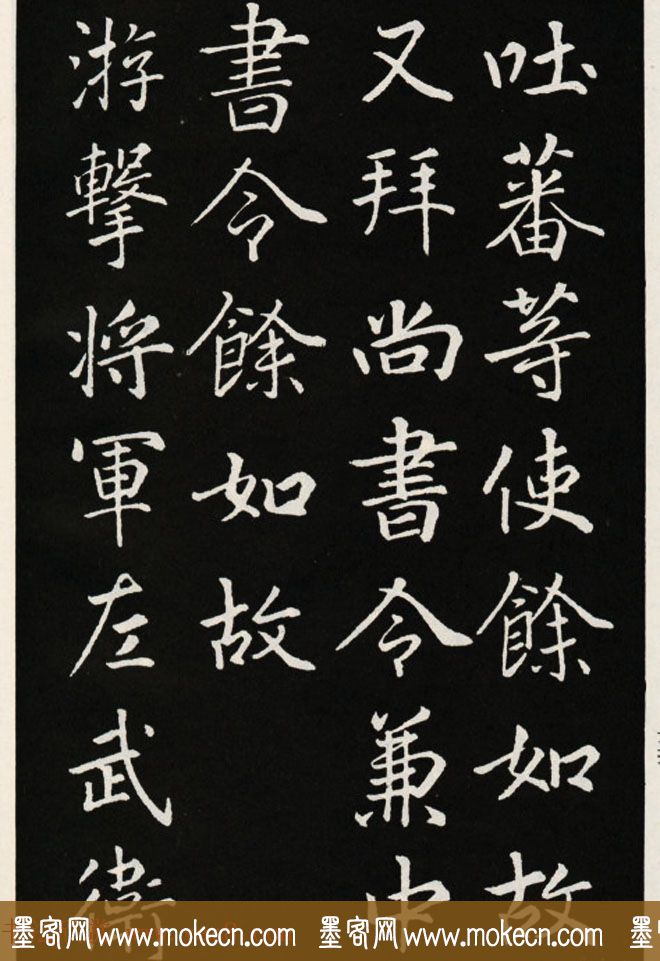 吐蕃等使餘如故
又拜尚書令兼中
書令餘如故
游擊將軍左武衛
墨客网 www.mokecn.com 墨客网 www.mokecn.com